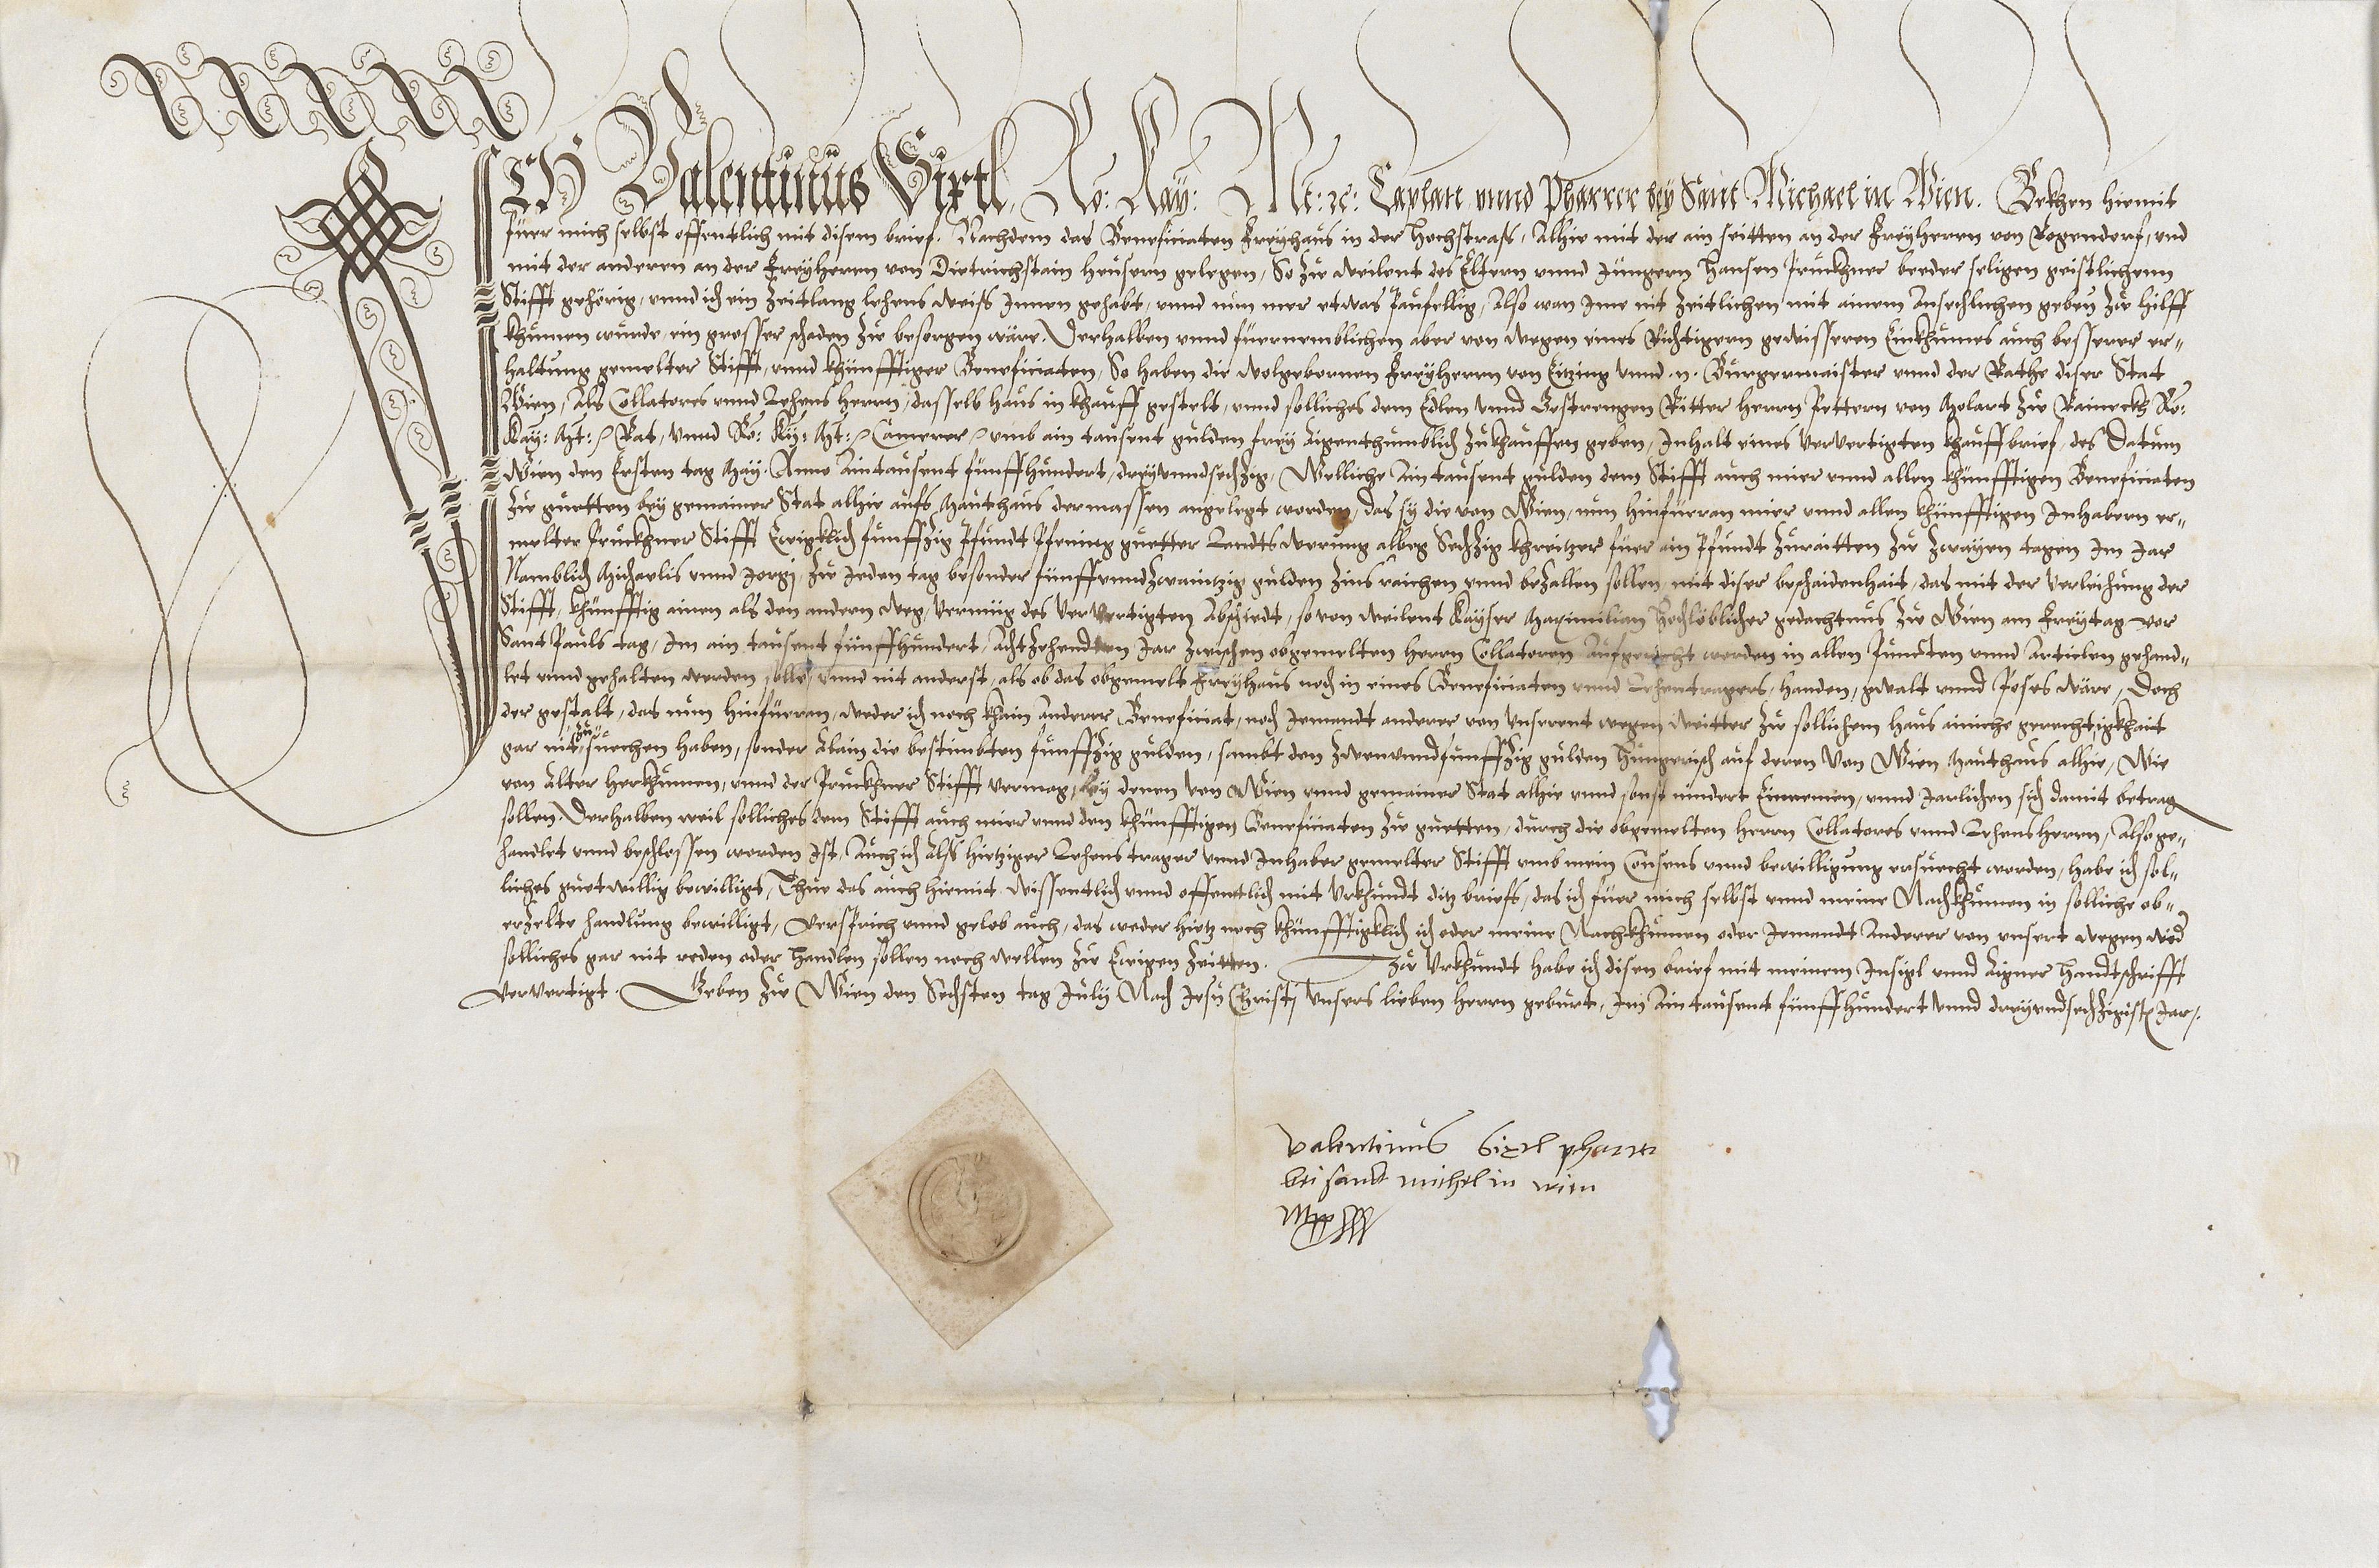 ICH Valentinus Sixtl, Rö: Kay: Mt: rc: Caplan unnd Pharrer bey Sant Michael in Wien. Bekhen hiemit
füer mich selbst offentlich mit disem brief. Nachdem das Beneficiaten Freyhaus in der Hochstrass, Alhie mit der ain seitten an der Freyherren von Rogendorf, und
mit der anderen an der Freyherrn von Dietrichstain heusern gelegen, So zue weilent des Eltern unnd Jungern Hansen Pruckhner beeder seligen geistlichenn
Stifft gehörig, unnd ich ein zeitlang lehens weiss Innen gehabt, unnd nun mer etwas paufellig, Also wan Ime nit zeitlichen mit ainem Ansechlichen geben zue hilff
khumen wurde, ein grosser schaden zue besorgen wäre. Derhalben unnd füernemblichen aber von wegen eines Richtigern gewisseren Einkhumes auch besserer er-
haltung gemelter Stifft, unnd khunfftiger Beneficiaten, So haben die wolgebornen Freyherrn von Eitzing unnd .n. Burgermaister unnd der Rathe diser Stat
Wien, Als Collatores unnd Lehens herrn, dasselb haus in khauff gestelt, unnd solliches dem Edlen unnd Gestrengen Ritter herrn Pettern von Molart zue Raineckh Rö:
Kay: Mt: rc Rat, unnd Rö: Kü: Mt: rc Camerer rc umb ain tausent gulden frey Aigenthumblich zukhauffen geben, Inhalt eines ververtigten khauffbrief, des Datum
Wien den Ersten tag May. Anno Aintausent funffhundert, dreyunndsechzig, Welliche Ain tausent gulden dem Stifft auch mier unnd allen khünfftigen Beneficiaten
zue guetten bey gemainer Stat alhie aufs Mauthaus dermassen angelegt worden, das sy die von Wien, nun hinfüeran mier unnd allen khünfftigen Inhabern er-
melter Pruckhner Stifft Ewigklich funffzig Pfundt Pfening guetter Landtswerung albeg Sechzig khreitzer füer ain Pfundt zuraitten zue zwayen tagen Im Jar
Namblich Michaelis unnd Jorgi, zue Jeden tag besonder funffunndzwaintzig gulden Zins raichen unnd bezallen sollen, mit diser beschaidenhait, das mit der verleichung der
Stifft, khünfftig ainen als den andern weg, vermüg des ververtigten Abschiedt, so von weilent Kayser Maximilian Hochlöblicher gedachtnus zue Wien am Freytag vor
Sant Pauls tag, Im ain tausent funffhundert, Achtzehendten Jar zwischen obgemelten herrn Collatoren Aufgericht worden in allen Puncten unnd Articlen gehand-
let unnd gehalten werden solle, unnd nit anderst, als ob das obgemelt Freyhaus noch in eines Beneficiaten unnd Lehentragers, handen, gwalt unnd Poses wäre, Doch
der gestalt, das nun hinfüeran, weder ich noch khain Anderer Beneficiat, noch Jemandt anderer von Unserent wegen weitter zue sollichem Haus ainiche gerechtigkhait
gar nit zu suechen haben, sonder Alain die bestimbten funffzig gulden, sambt den zwenunndfunffzig gulden Hungerisch auf deren Von Wien Mauthaus alhie, Wie
von Alter herkhumen, unnd der Pruckhner Stifft vermag, bey denen von Wien unnd gemainer Stat alhie unnd sonst nündert Einnemen, unnd Jarlichen sich damit betrag
sollen, Derhalben weil solliches dem Stifft auch mier unnd den khünfftigen Beneficiaten zue guetten, durch die obgemelten herrn Collatores unnd Lehensherrn, Also ge-
handlet unnd beschlossen worden Ist, Auch ich Alss hietziger Lehenstrager unnd Inhaber gemelter Stifft umb mein Consens unnd bewilligung ersuecht worden, habe ich sol-
liches guetwillig bewilligt, Thue das auch hiemit wissentlich unnd offentlich mit Urkhundt ditz briefs, das ich füer mich selbst unnd meine Nachkhumen in solliche ob-
erzelte handlung bewilligt, Versprich unnd gelob auch, das weder hietz noch khünfftigklich ich oder meine Nachkhumen oder Jemandt Anderer von unsert wegen wid
solliches gar nit reden oder Handlen sollen noch wellen zue Ewigen Zeitten. Zue Urkhundt habe ich disen brief mit meinem Insigl unnd Aigner Handtschrifft
ververtigt. Geben zue Wien den Sechsten tag July Nach Jesu Christi Unsers lieben herrn geburt, Im Ain tausent funffhundert unnd dreyundsechzigisten Jar.
Valentinus Sixtl pharrer
bei sandt michel in wien
Mpp